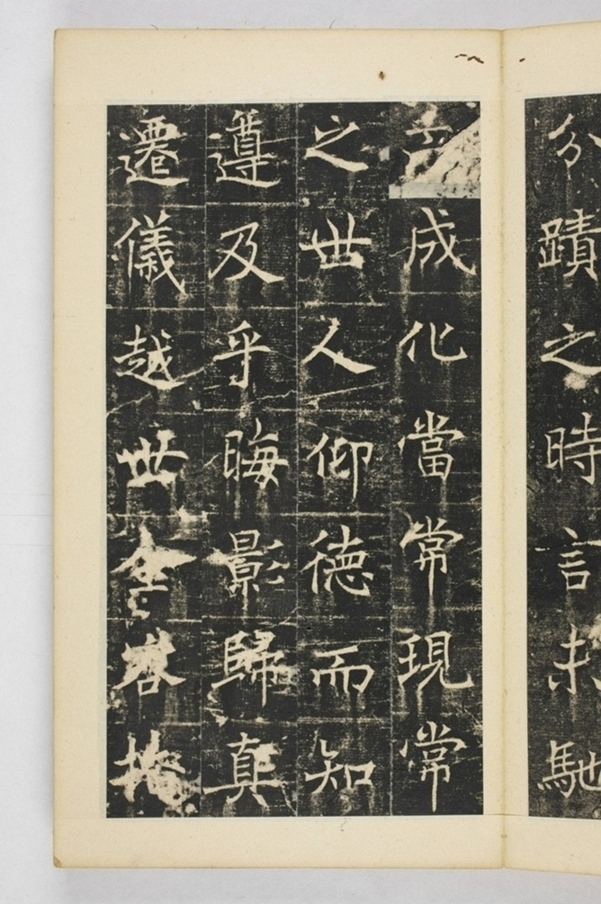 分蹟之時言未馳
成化當常現常
之世人仰德而知
遵及乎晦影歸真
遷儀越世金容掩